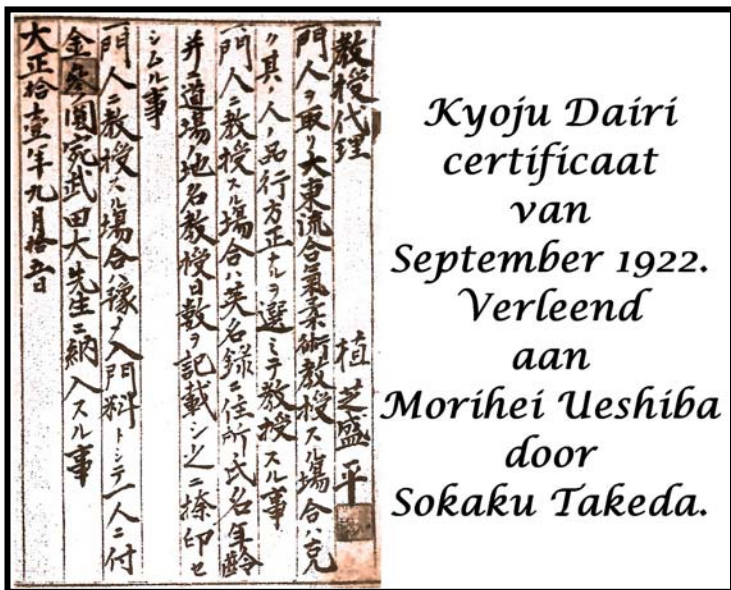 教授代理 植芝盛平
一門人ヲ取リ大東流合氣柔術教授スル場合ハ克
ク其ノ人ノ品行方正ナルヲ選ミテ教授スル事
一門人ニ教授スル場合ハ英名録ニ住所氏名年齢
并ニ道場ノ地名教授日数ヲ記載シ之ニ捺印セ
シムル事
一門人ニ教授スル場合ハ豫メ入門料トシテ一人ニ付
金参圓宛武田大先生ニ納入スル事
大正拾壹年九月拾五日
Kyoju Dairi
certificaat
van
September 1922.
Verleend
aan
Morihei Ueshiba
door
Sokaku Takeda.